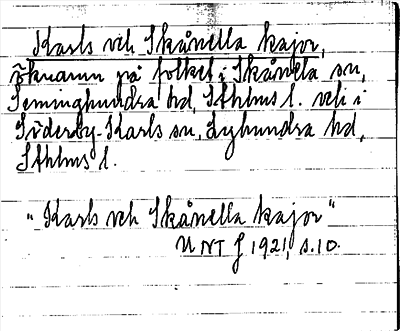 Karls och Skånella kajor,
öknamn på folket i Skånela sn,
Seminghundra hd, Sthlms l. och i
Söderby-Karls sn, Lyhundra hd,
Sthlms l.
"Karls och Skånella kajor"
UNT J 1921, s. 10.